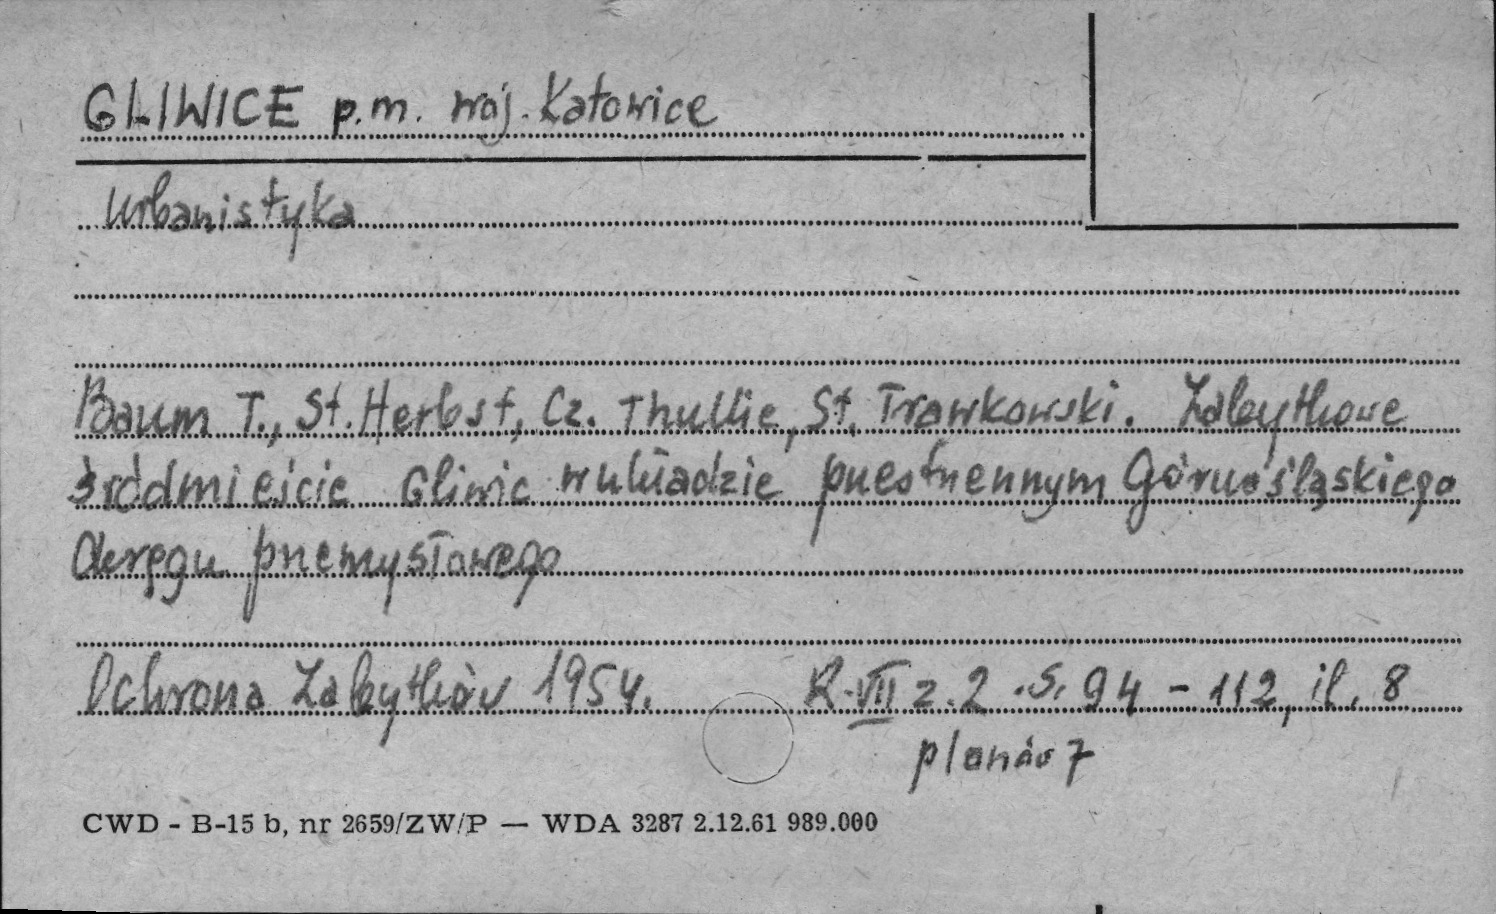 GLIWICE p.m. woj. Katowice
Urbanistyka
Baum T., St. Herbst, Cz. Thullie, St. Trawkowski. Zabytkowe
śródmieście Gliwic w układzie przestrzennym Górnośląskiego
Okręgu przemysłowego
Ochrona Zabytków 1954. R.VII z.2 .s. 94 - 112, il. 8
planów 7
CWD - B-15 b, nr 2659/ZW/P — WDA 3287 2.12.61 989.000